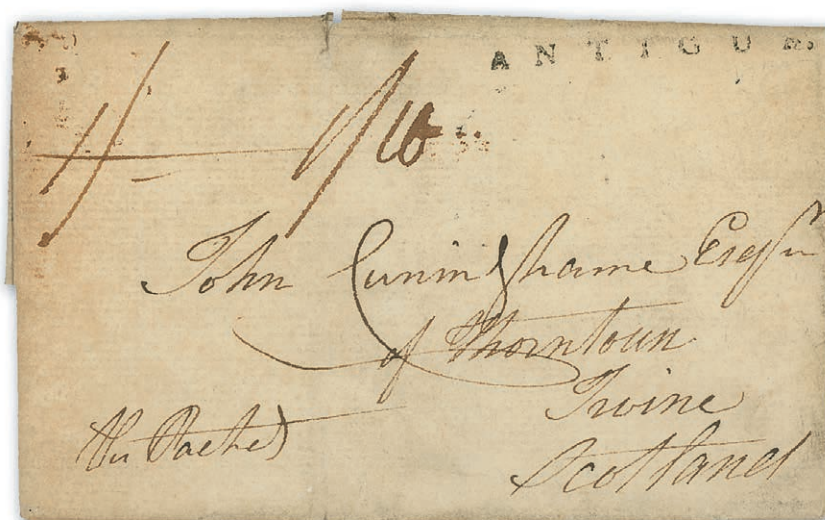 ANTIGUA
1/- 1/10
John Cuninghame Esqr
of Thorntoun
Irvine
Scotland
Packet